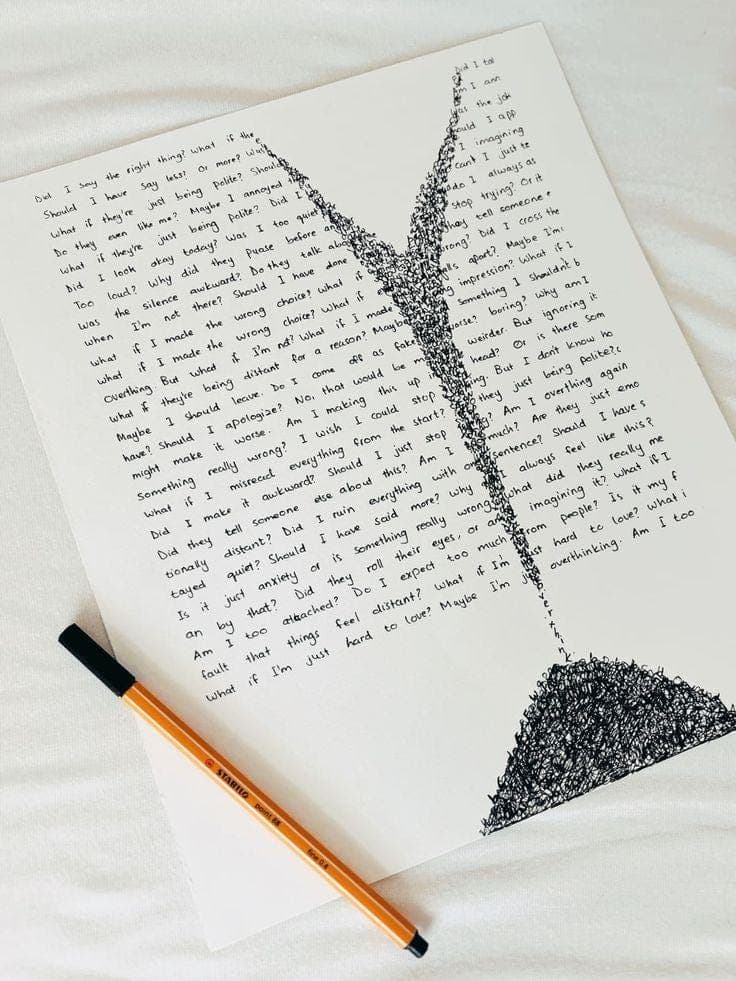 Did I say the right thing? What if the Did I tal
Should I have say less? Or more? Was m I ann
What if they're just being polite? Should as the jok
Do they even like me? Maybe I annoyed th ould I app
What if they're just being polite? Did I I imagining
Did I look okay today? Was I too quiet cant I just te
Too loud? Why did they puase before an do I always as
Was the silence awkward? Do they talk abo stop trying? Or it
when I'm not there? Should I have done hey tell someone e
what if I made the wrong choice? What if rong? Did I cross the
what if I made the wrong choice? What if e lls apart? Maybe I'm
Overthing. But what if I'm not? What if I made g impression? What if I
What if they're being distant for a reason? Maybe something I shouldnt b
Maybe I should leave. Do I come off as fake orse? boring? Why am I
have? Should I apologize? No, that would be weirder. But ignoring it
might make it worse. Am I making this up head? Or is there som
Something really wrong? I wish I could stop ng. But I don't know ho
What if I misread everything from the start? they just being polite?
Did I make it awkward? Should I just stop ? Am I overthing again
Did they tell someone else about this? Am I much? Are they just emo
tionally distant? Did I ruin everything with one sentence? Should I have s
tayed quiet? Should I have said more? Why I always feel like this?
Is it just anxiety or is something really wrong what did they really me
an by that? Did they roll their eyes, or am imagining it? What if I
Am I too attached? Do I expect too much from people? Is it my f
fault that things feel distant? What if I'm just hard to love? What i
What if I'm just hard to love? Maybe I'm just overthinking. Am I too
overthink
STABILO point 88 fine 0.4